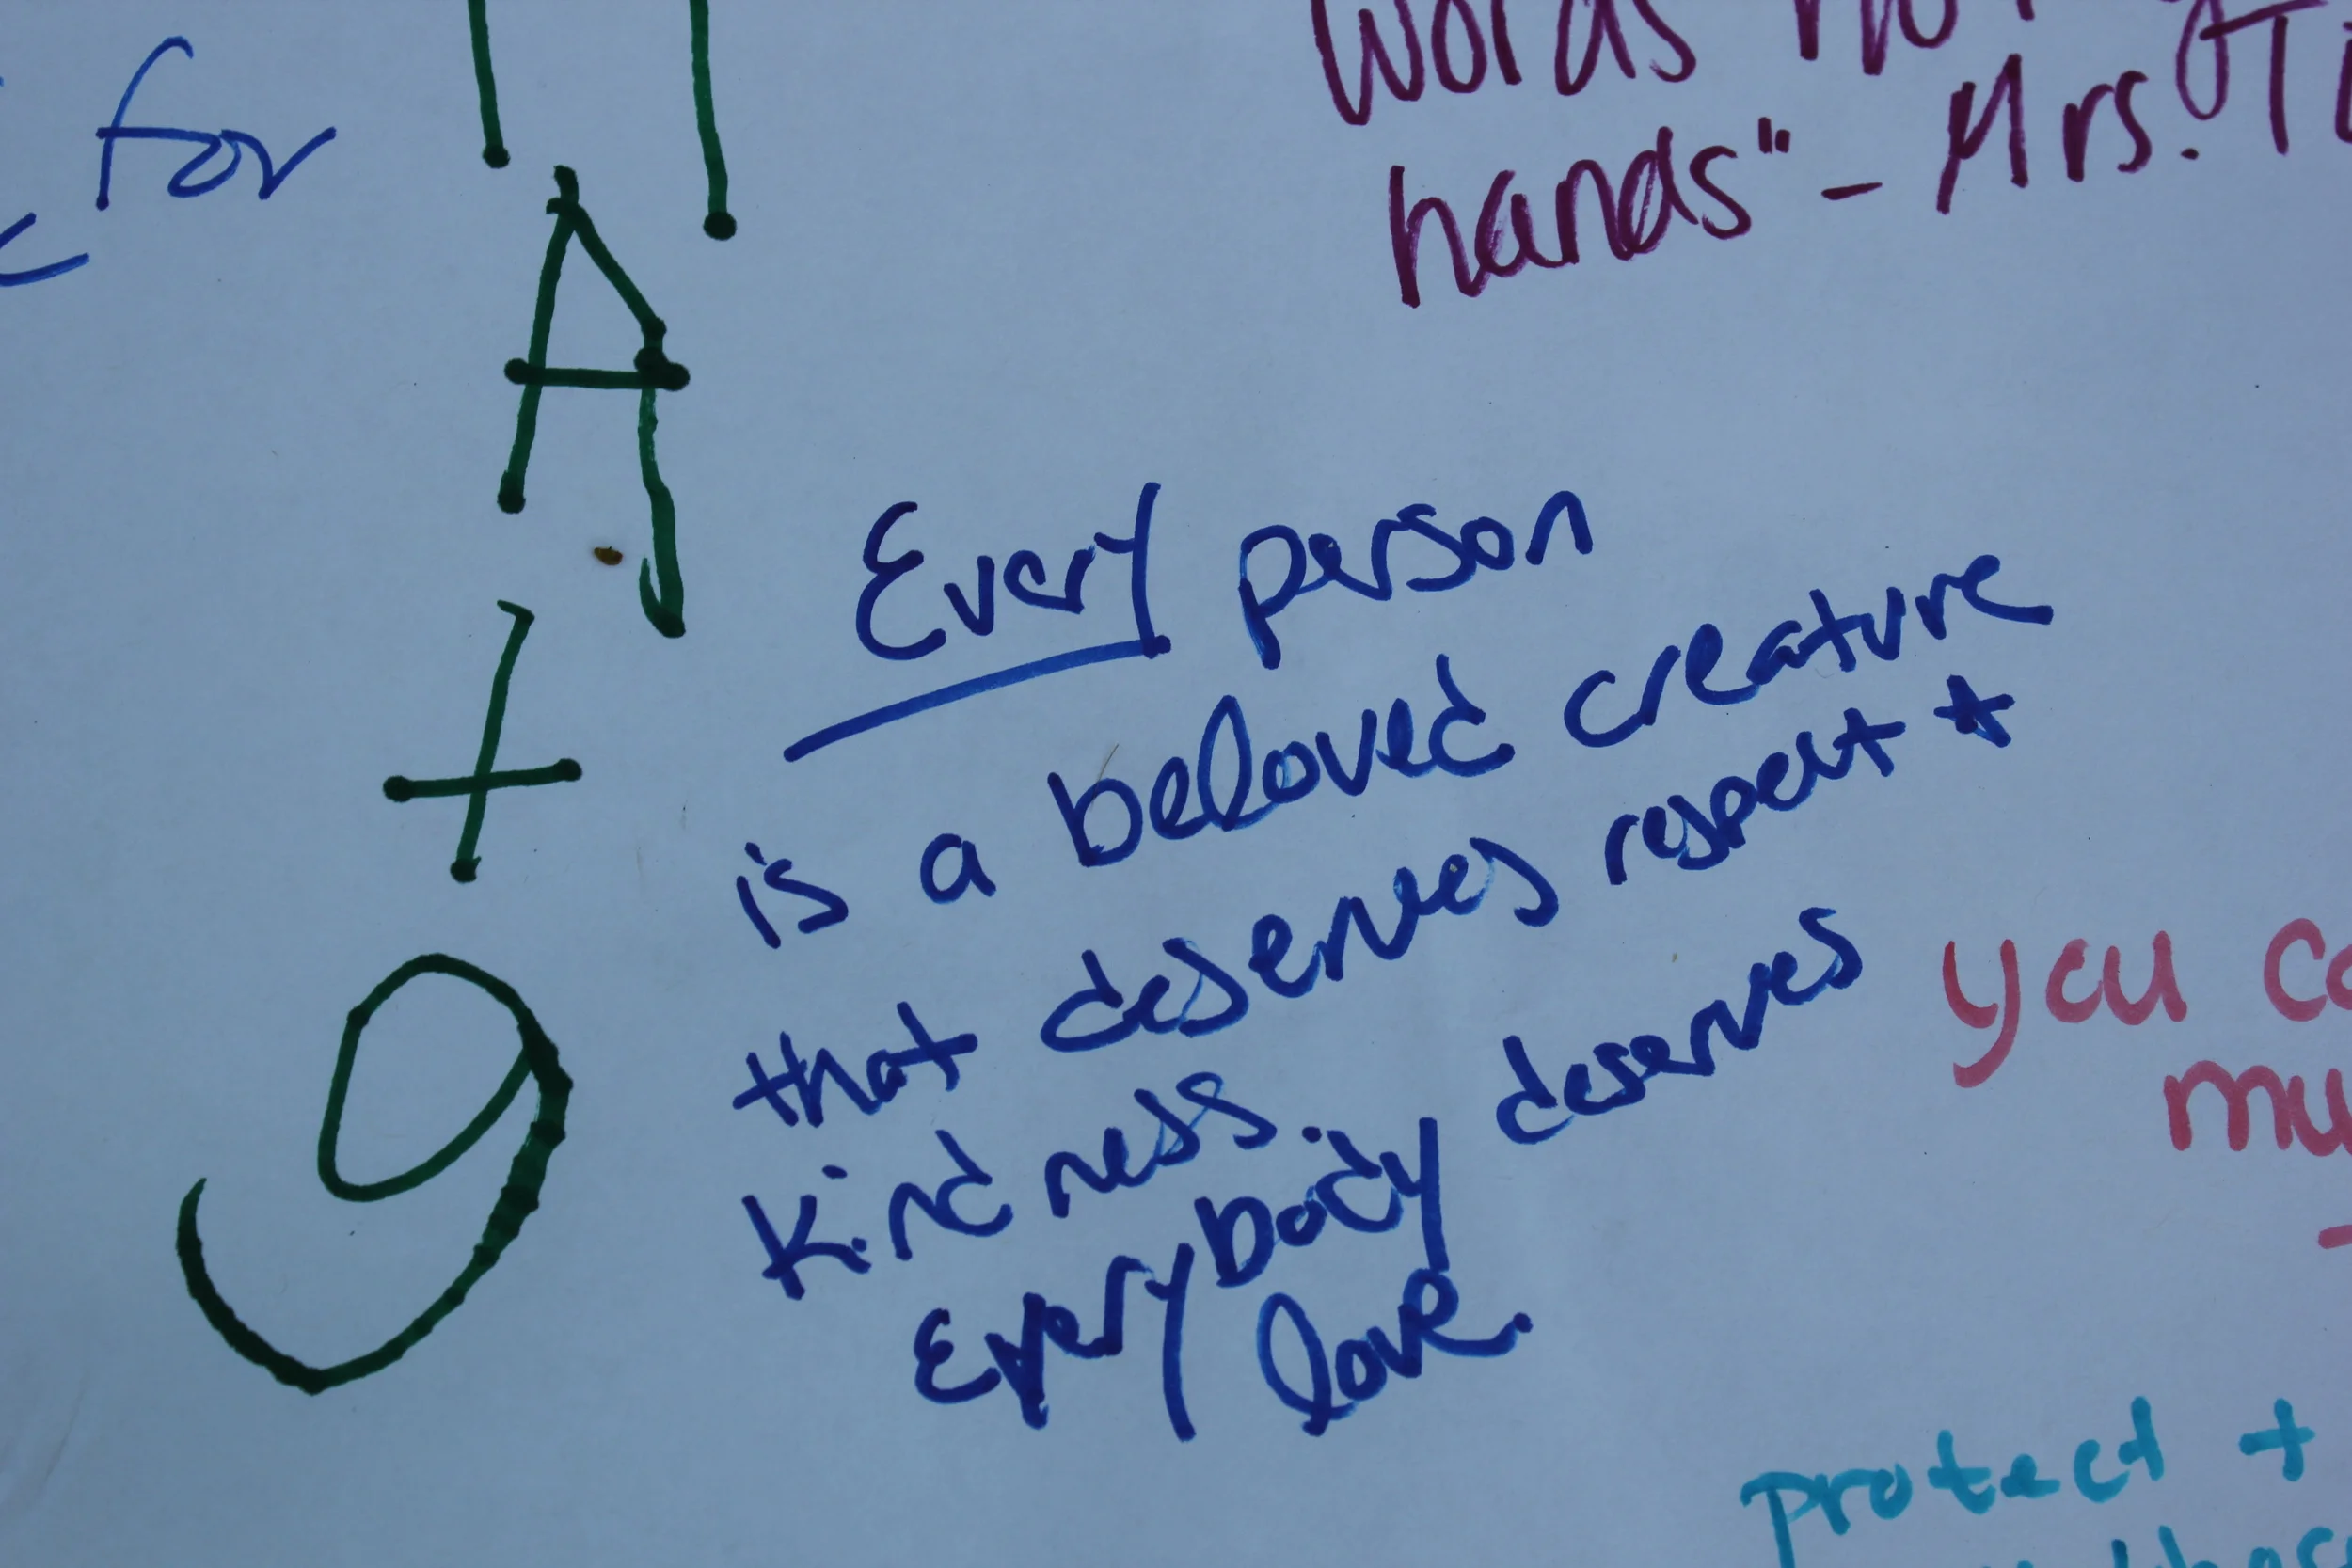 for
A
t
9
words
hands" - Mrs.
Every person
is a beloved creature
that deserves respect +
kindness.
Everybody deserves
love.
you
protect +